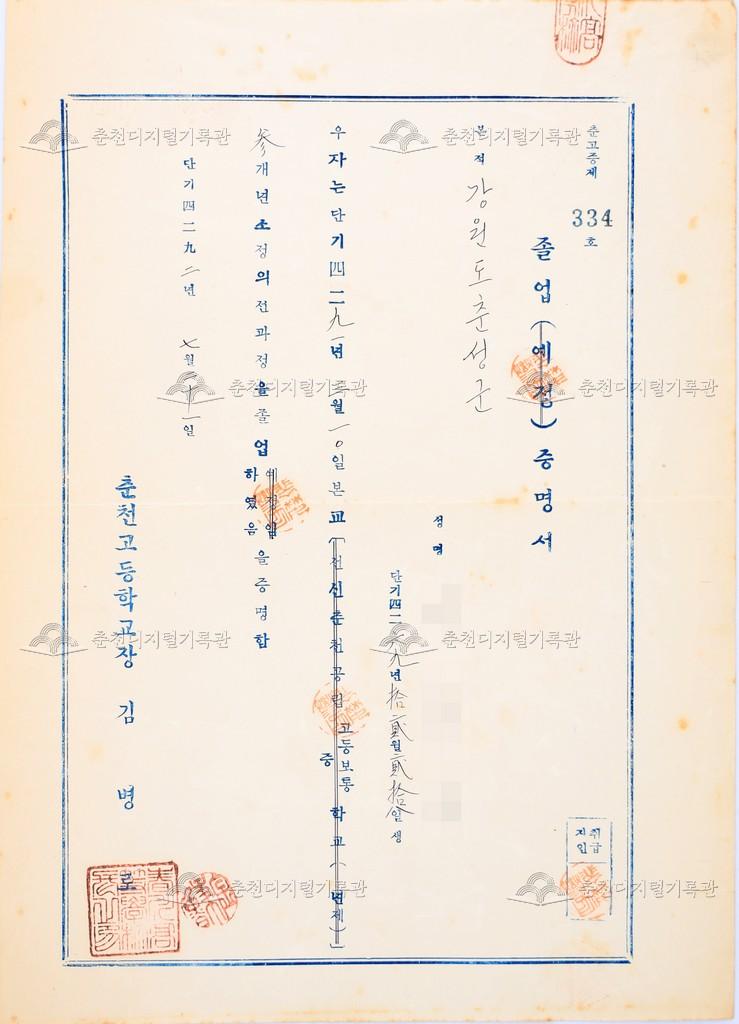 춘고증제 334 호
졸업(예정)증명서
본적 강원도춘성군
성명
단기四二六九年拾貳월貳拾일생
우자는단기四二九一년三월一〇일본교(전신춘천공립고등보통중학교(년제)
参개년소정의전과정을졸업예정임하였음을증명함
단기四二九二년 七월二十一일
춘천고등학교장 김 병 로
취급지인
춘천디지털기록관
춘천디지털기록관
춘천디지털기록관
춘천디지털기록관
춘천디지털기록관
춘천디지털기록관
춘천디지털기록관
춘천디지털기록관